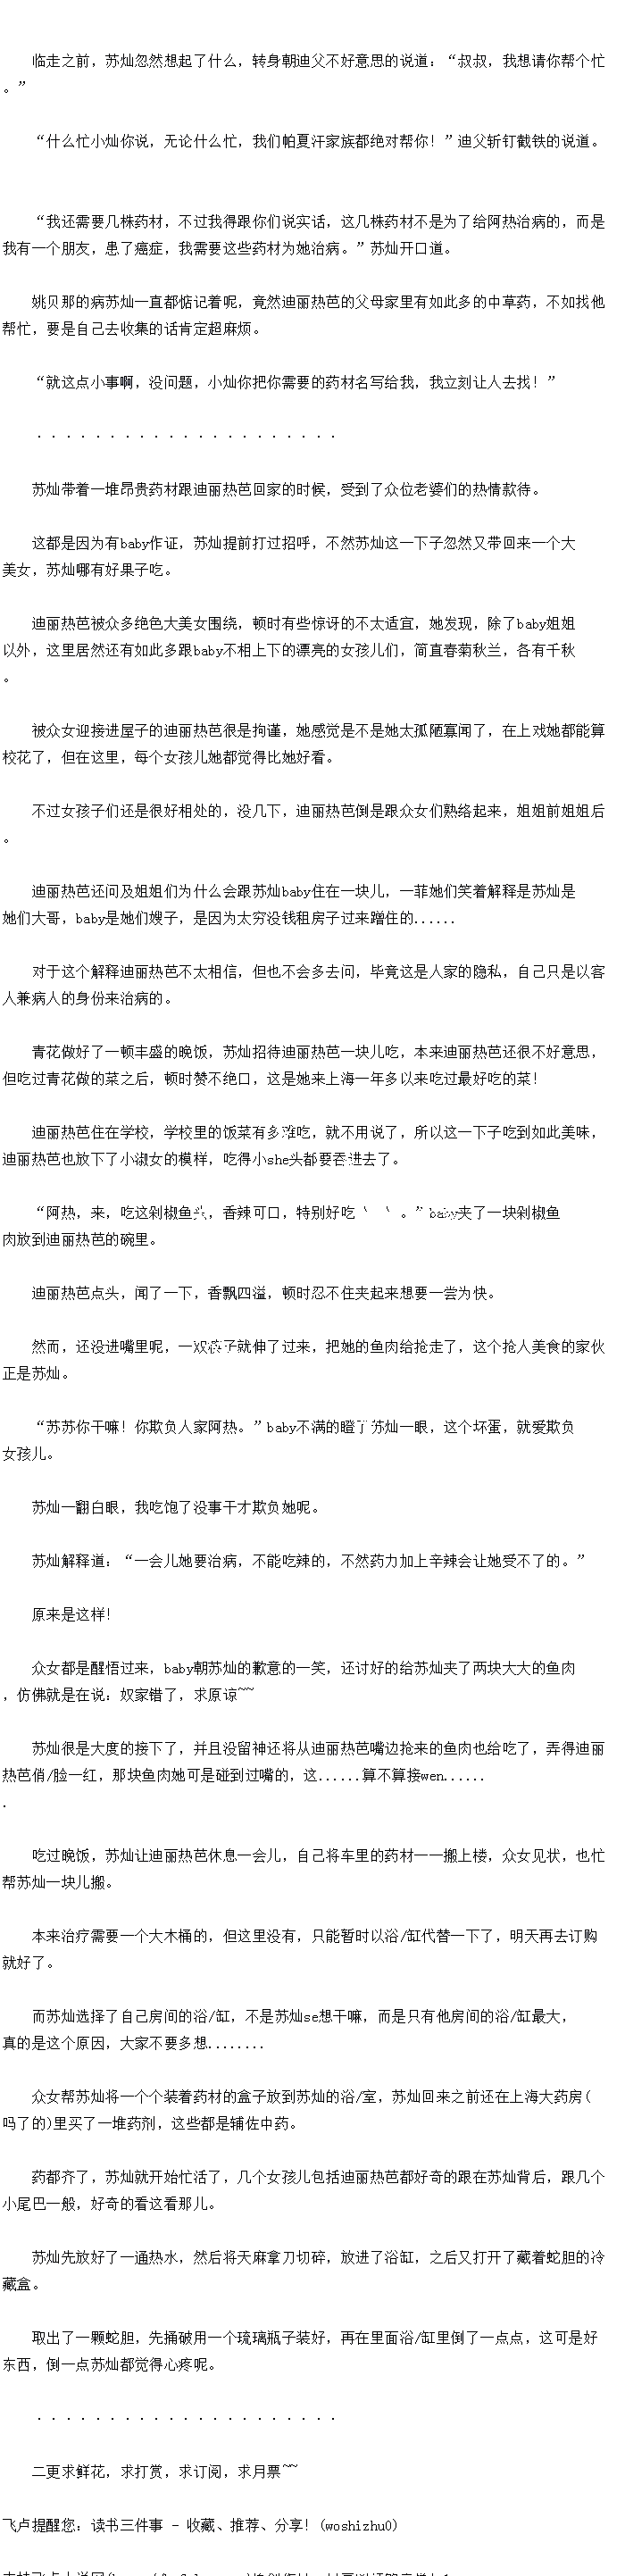 临走之前，苏灿忽然想起了什么，转身朝迪父不好意思的说道：“叔叔，我想请你帮个忙
。”
“什么忙小灿你说，无论什么忙，我们帕夏汗家族都绝对帮你！”迪父斩钉截铁的说道。
“我还需要几株药材，不过我得跟你们说实话，这几株药材不是为了给阿热治病的，而是
我有一个朋友，患了癌症，我需要这些药材为她治病。”苏灿开口道。
姚贝那的病苏灿一直都惦记着呢，竟然迪丽热芭的父母家里有如此多的中草药，不如找他
帮忙，要是自己去收集的话肯定超麻烦。
“就这点小事啊，没问题，小灿你把你需要的药材名写给我，我立刻让人去找！”
．．．．．．．．．．．．．．．．．．．．．
苏灿带着一堆昂贵药材跟迪丽热芭回家的时候，受到了众位老婆们的热情款待。
这都是因为有baby作证，苏灿提前打过招呼，不然苏灿这一下子忽然又带回来一个大
美女，苏灿哪有好果子吃。
迪丽热芭被众多绝色大美女围绕，顿时有些惊讶的不太适宜，她发现，除了baby姐姐
以外，这里居然还有如此多跟baby不相上下的漂亮的女孩儿们，简直春菊秋兰，各有千秋
。
被众女迎接进屋子的迪丽热芭很是拘谨，她感觉是不是她太孤陋寡闻了，在上戏她都能算
校花了，但在这里，每个女孩儿她都觉得比她好看。
不过女孩子们还是很好相处的，没几下，迪丽热芭倒是跟众女们熟络起来，姐姐前姐姐后
。
迪丽热芭还问及姐姐们为什么会跟苏灿baby住在一块儿，一菲她们笑着解释是苏灿是
她们大哥，baby是她们嫂子，是因为太穷没钱租房子过来蹭住的......
对于这个解释迪丽热芭不太相信，但也不会多去问，毕竟这是人家的隐私，自己只是以客
人兼病人的身份来治病的。
青花做好了一顿丰盛的晚饭，苏灿招待迪丽热芭一块儿吃，本来迪丽热芭还很不好意思，
但吃过青花做的菜之后，顿时赞不绝口，这是她来上海一年多以来吃过最好吃的菜！
迪丽热芭住在学校，学校里的饭菜有多难吃，就不用说了，所以这一下子吃到如此美味，
迪丽热芭也放下了小淑女的模样，吃得小she头都要吞进去了。
“阿热，来，吃这剁椒鱼头，香辣可口，特别好吃 。”baby夹了一块剁椒鱼
肉放到迪丽热芭的碗里。
迪丽热芭点头，闻了一下，香飘四溢，顿时忍不住夹起来想要一尝为快。
然而，还没进嘴里呢，一双筷子就伸了过来，把她的鱼肉给抢走了，这个抢人美食的家伙
正是苏灿。
“苏苏你干嘛！你欺负人家阿热。”baby不满的瞪了苏灿一眼，这个坏蛋，就爱欺负
女孩儿。
苏灿一翻白眼，我吃饱了没事干才欺负她呢。
苏灿解释道：“一会儿她要治病，不能吃辣的，不然药力加上辛辣会让她受不了的。”
原来是这样！
众女都是醒悟过来，baby朝苏灿的歉意的一笑，还讨好的给苏灿夹了两块大大的鱼肉
，仿佛就是在说：奴家错了，求原谅~~
苏灿很是大度的接下了，并且没留神还将从迪丽热芭嘴边抢来的鱼肉也给吃了，弄得迪丽
热芭俏/脸一红，那块鱼肉她可是碰到过嘴的，这......算不算接wen......
.
吃过晚饭，苏灿让迪丽热芭休息一会儿，自己将车里的药材一一搬上楼，众女见状，也忙
帮苏灿一块儿搬。
本来治疗需要一个大木桶的，但这里没有，只能暂时以浴/缸代替一下了，明天再去订购
就好了。
而苏灿选择了自己房间的浴/缸，不是苏灿se想干嘛，而是只有他房间的浴/缸最大，
真的是这个原因，大家不要多想........
众女帮苏灿将一个个装着药材的盒子放到苏灿的浴/室，苏灿回来之前还在上海大药房(
吗了的)里买了一堆药剂，这些都是辅佐中药。
药都齐了，苏灿就开始忙活了，几个女孩儿包括迪丽热芭都好奇的跟在苏灿背后，跟几个
小尾巴一般，好奇的看这看那儿。
苏灿先放好了一通热水，然后将天麻拿刀切碎，放进了浴缸，之后又打开了藏着蛇胆的冷
藏盒。
取出了一颗蛇胆，先捅破用一个琉璃瓶子装好，再在里面浴/缸里倒了一点点，这可是好
东西，倒一点苏灿都觉得心疼呢。
．．．．．．．．．．．．．．．．．．．．．
二更求鲜花，求打赏，求订阅，求月票~~
飞卢提醒您：读书三件事 - 收藏、推荐、分享！(woshizhu0)